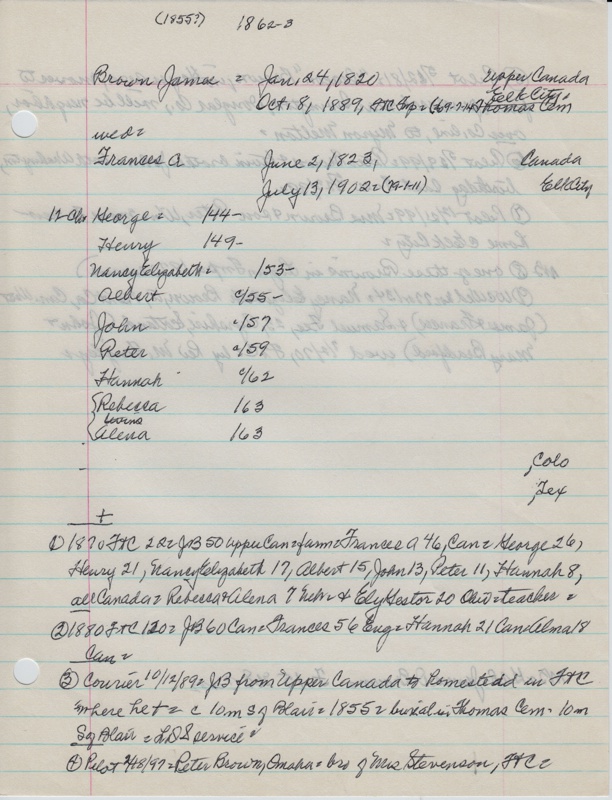 (1855?) 1862-3
Brown James = Jan, 24, 1820 Upper Canada
Oct. 8, 1889, FtC Emp = (69-7-14 Thomas Cem Elk City =
wed =
Frances A June 2, 1823, Canada
July 13, 1902 = (79-1-11) Elk City
12-Chn George = 144-
Henry 149-
Nancy Elizabeth = 153-
Albert c/55-
John c/57
Peter c/59
Hannah c/62
{Rebecca 163
twins
{Alena 163
, Colo
, Tex
+
① 1870 FtC 22 = JB 50 upper Can = farm = Frances A 46, Can = George 26,
Henry 21, Nancy Elizabeth 17, Albert 15, John 13, Peter 11, Hannah 8,
all Canada = Rebecca & Alena 7 Nebr = & Ely Gestor 20 Ohio = teacher =
② 1880 FtC 120 = JB 60 Can = Frances 56 Eng = Hannah 21 Can = Alma 18
Can =
③ Courier 10/12/89 = JB from Upper Canada to homestead in FtC
where he + = c 10m sq Blair = 1855 = burial in Thomas Cem. 10m
Sq Blair = LDS service =
④ Pilot /97 = Peter Brown, Omaha = bro of Mrs Stevenson, FtC =